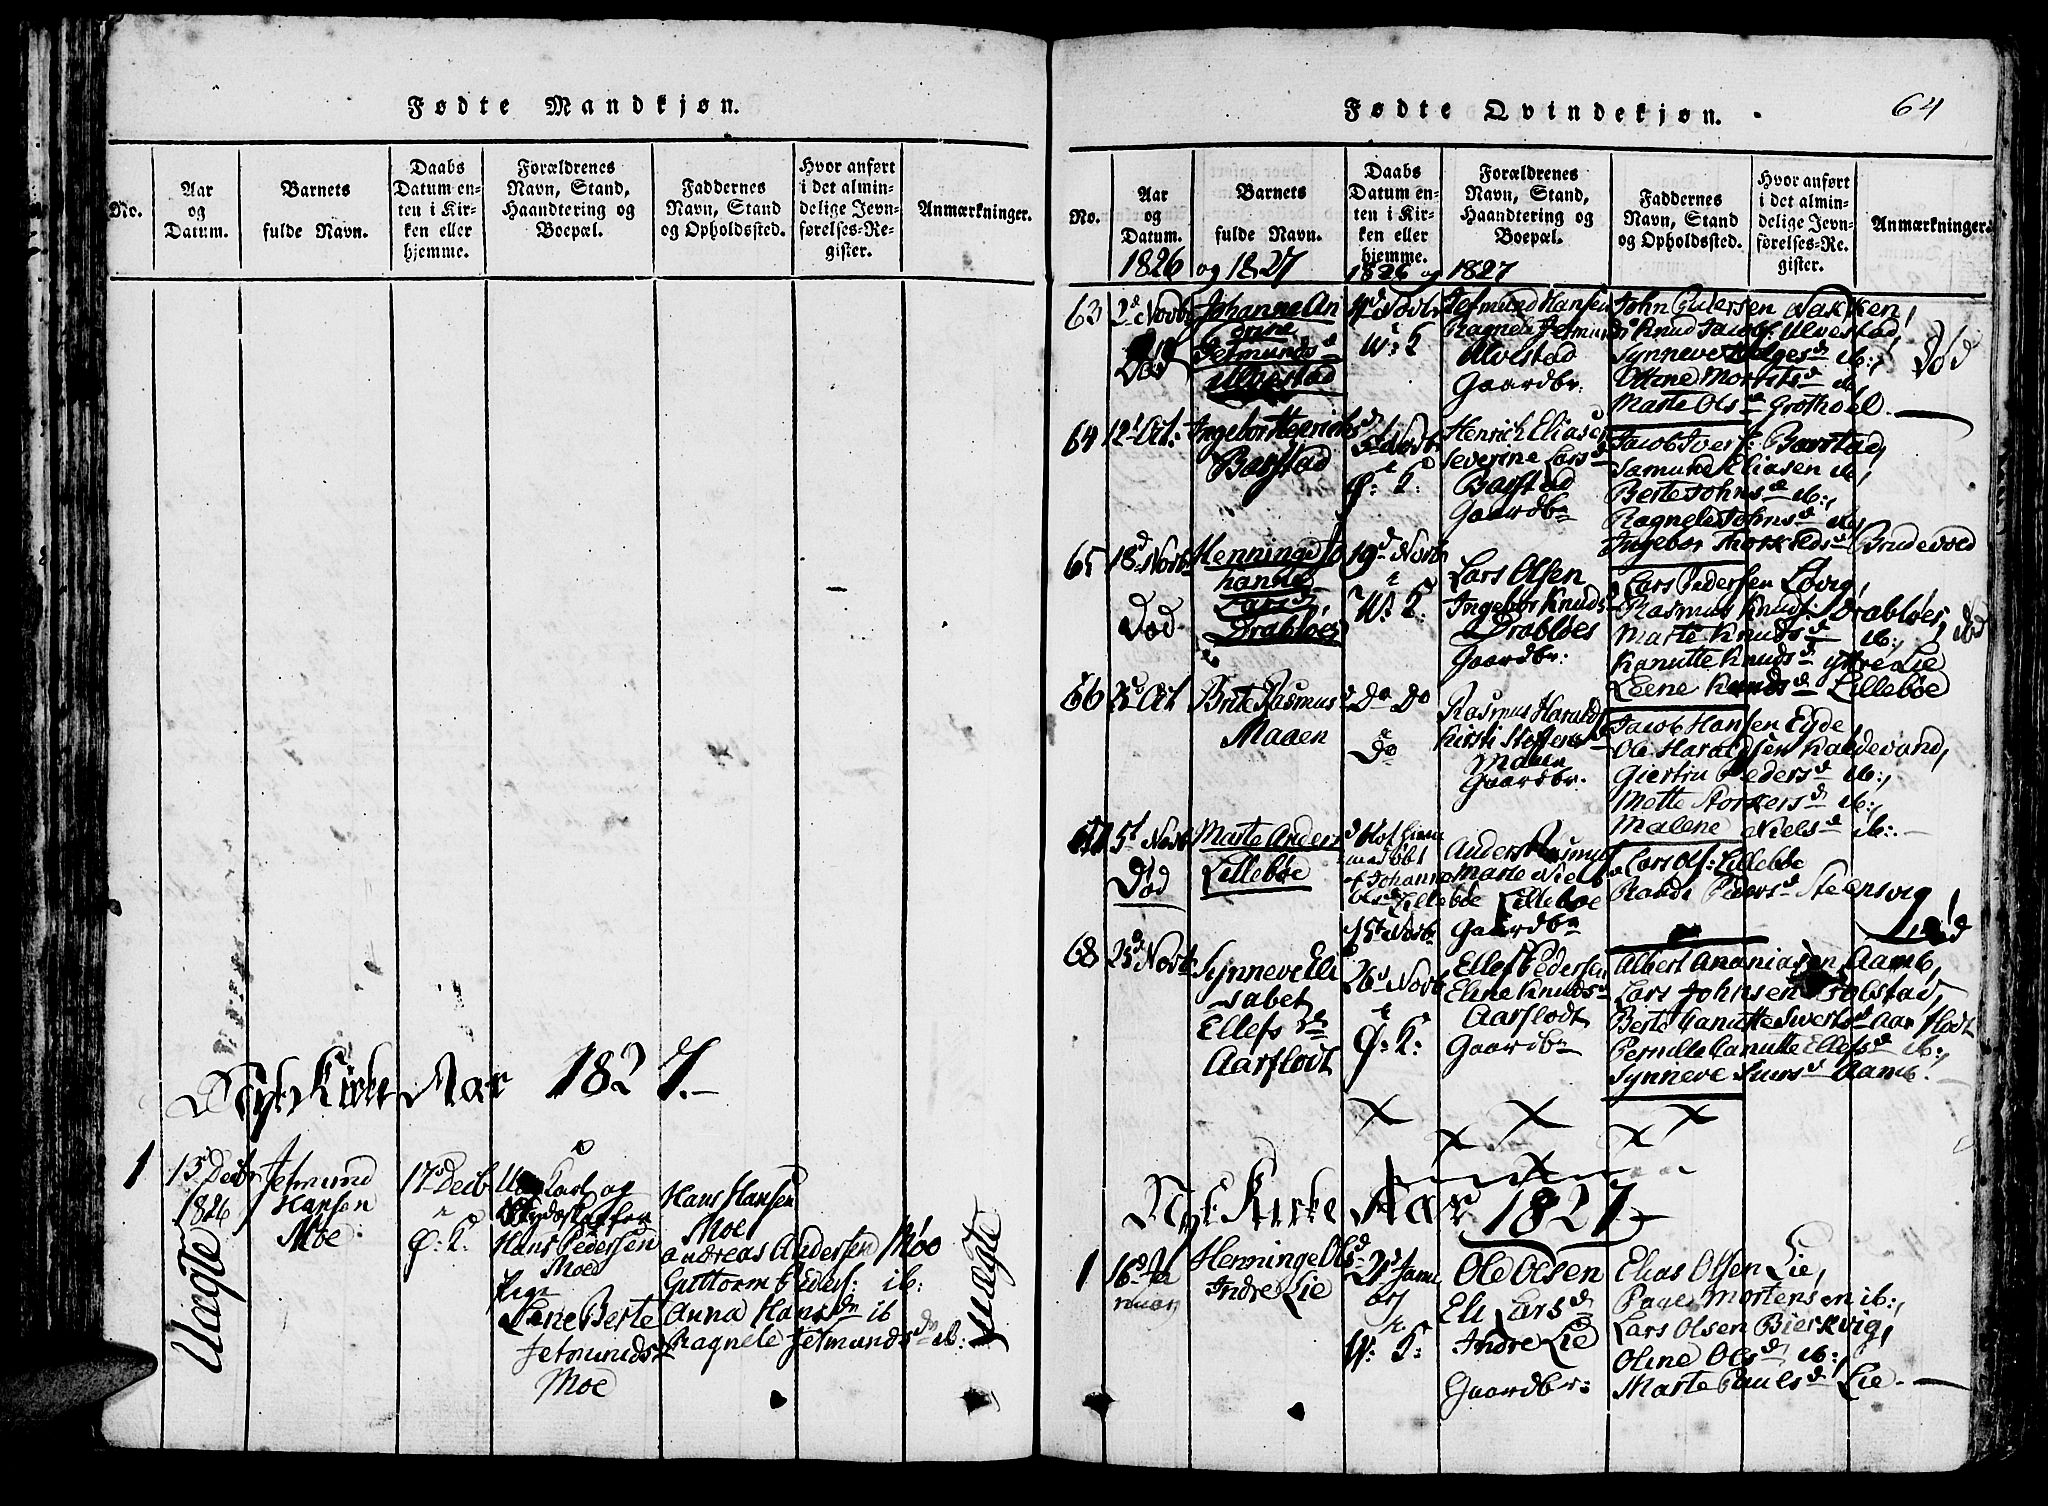 Fødte Mandkjøn.
No.
Aar
og
Datum.
Barnets
fulde Navn.
Daabs
Datum en-
ten i Kir-
ken eller
hjemme.
Forældrenes
Navn, Stand,
Haandtering og
Boepæl.
Faddernes
Navn, Stand
og Opholdssted.
Hvor anført
i det almin-
delige Jevn-
førelses-Re-
gister.
Anmærkninger.
Nyt Kirke Aar 1827.
1
13d Decbr
1826
Uægte
Jetmund
Hansen
Moe
17d Decb
Ø: K:
Ung Karl og
Hans Pedersen
Moe
Pige
Lene Berte
Jetmundsd
Moe
Hans Hansen
Moe
Andreas Andersen Moe
Guttorm Peders: ib:
Anna Hansdn ib
Ragnele Jetmundsdn ib:
uægte
Fødte Qvindekjøn.
64
No.
Aar
og
Datum.
Barnets
fulde Navn.
Daabs
Datum en-
ten i Kir-
ken eller
hjemme.
Forældrenes
Navn, Stand,
Haandtering og
Boepæl.
Faddernes
Navn, Stand
og Opholdssted.
Hvor anført
i det almin-
delige Jevn-
førelses-Re-
gister.
Anmærkninger.
1826 og 1827 1826 og 1827
63
2d Novbr
Død
Johanne An
drine
Jetmundsd
Ulvestad
Novbr
W: K
Jetmund Hansen
Ragnele Jetmunds
Ulvestad
Gaardbr:
John Pedersen Nakken,
Knud Jacobs: Ulvestad,
Synneve Helgesd ib:,
Marte Olsd Grothoel
Død
64
12t Oct:
Ingebor Henrichsd
Barstad
Novbr
Ø: K:
Henrich Eliasen
Severine Larsd
Barstad
Gaardbr
Jacob Ivers: Barstad,
Samund Eliasen ib,
Berte Johnsd ib:,
Ragnele Johnsd ib,
Ingebor Thorkildsd Brudevoed
65
18d Novbr
Død
Henninge Jo
hanne
Larsd
Drabløes
19d Novbr
W: K:
Lars Olsen
Ingebor Knudsd
Drabløes
Gaardbr:
Lars Pedersen Løvig,
Rasmus Knuds: Drabløes,
Marte Knudsd ib:,
Kanutte Knudsd ytre Lie
Leene Knudsd Lillebøe
Død
66
Oct
Brite Rasmusd
Maaen
Do Do
Do
Rasmus Haralds
Kirsti Steffensd
Maaen
Gaardbr:
Jacob Hansen Eyde
Ole Haraldsen Kaldevand,
Giertru Pedersd ib:,
Mette Storkersd ib:,
Malene Nielsd ib:
67
5t Novbr
Død
Marte Andersd
Lillebøe
hiemmedøbt
af Johanne
Lillebøe
15t Novbr
Anders Rasmus
Marte Niels
Lillebøe
Gaardbr
Lars Ols: Lillebøe
Randi Pedersd Steensvig
Død
68
25d Novbr
Synneve Eli
sabet
Ellefsdn
Aarflodt
26d Novbr
Ø: K:
Ellef Pedersen
Eline Knudsd
Aarflodt
Gaardbr
Albert Ananiasen Aamb,
Lars Johnsen Folstad,
Berte Canutte Sivertsd Aarflodt
Pernille Canutte Ellefsd ib:,
Synneve Siursd Aamb.
Nyt Kirke Aar 1827
1
16d Ja
nuary
Henninge Olsd
Indre Lie
21d Janu
ary
W: K:
Ole Olsen
Eli Larsd
Indre Lie
Gaardbr:
Elias Olsen Lie,
Paul Mortensen ib:,
Lars Olsen Bierkvig,
Oline Olsd ib:,
Marte Paulsd Lie